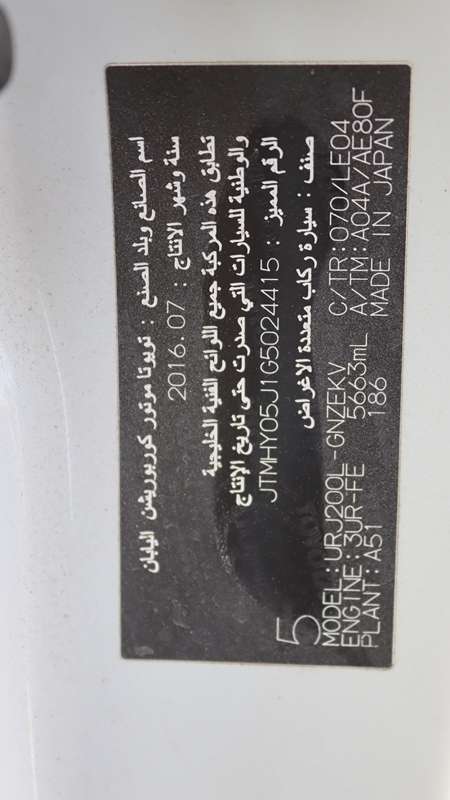 اسم الصانع وبلد الصنع : تويوتا موتور كوربوريشن اليابان
سنة وشهر الانتاج : 2016.07
تطابق هذه المركبة جميع اللوائح الفنية الخليجية
والوطنية للسيارات التي صدرت حتى تاريخ الإنتاج
الرقم المميز : JTMHY05J1G5024415
صنف : سيارة ركاب متعددة الاغراض
5
MODEL:URJ200L-GNZEKV C/TR:070/LE04
ENGINE:3UR-FE 5663mL A/TM:A04A/AE80F
PLANT:A51 186 MADE IN JAPAN